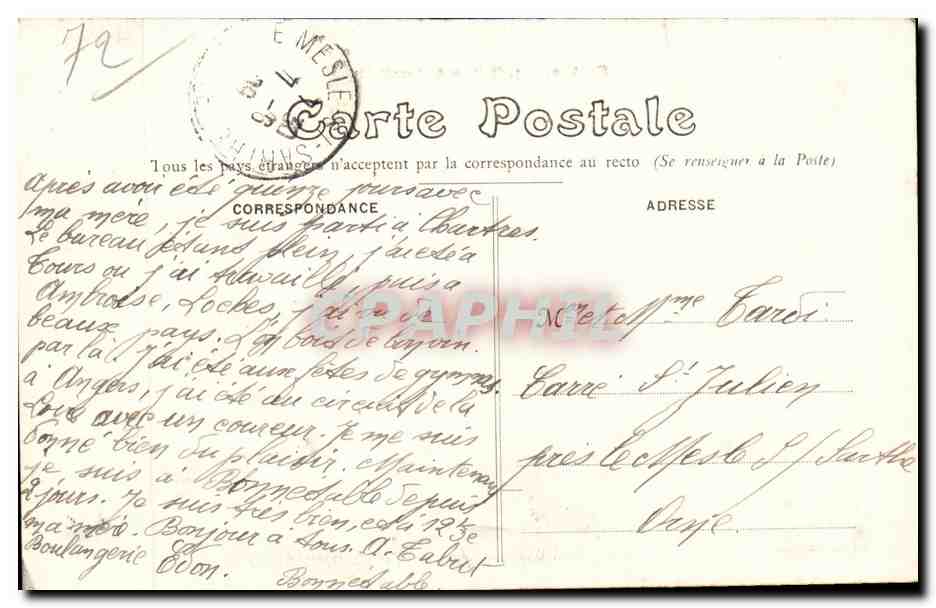 72
E MESLE-S-SARTHE
Carte Postale
Tous les pays étrangers n'acceptent par la correspondance au recto (Se renseigner à la Poste)
CORRESPONDANCE
Après avoir été quinze jours avec
ma mère, je suis parti à Chartres.
Le bureau étant plein, j'ai été à
Tours ou j'ai travaillé, puis a
Ambroise, Loches, j'ai vu de
beaux pays. L'y bois de bon vin
par là. J'ai été aux fêtes de gymnas.
à Angers, j'ai été au circuit de la
Loire avec un coureur. Je me suis
donné bien du plaisir. Maintenant
je suis à Bonnétable depuis
2 jours. Je suis très bien,
ma mère. Bonjour à tous. A. Tabut
Boulangerie Edon.
Bonnétable
ADRESSE
Mr et Mme Tardi
Carré St Julien
près le Mesle S/ Sarthe
Orne
CPAPHIL